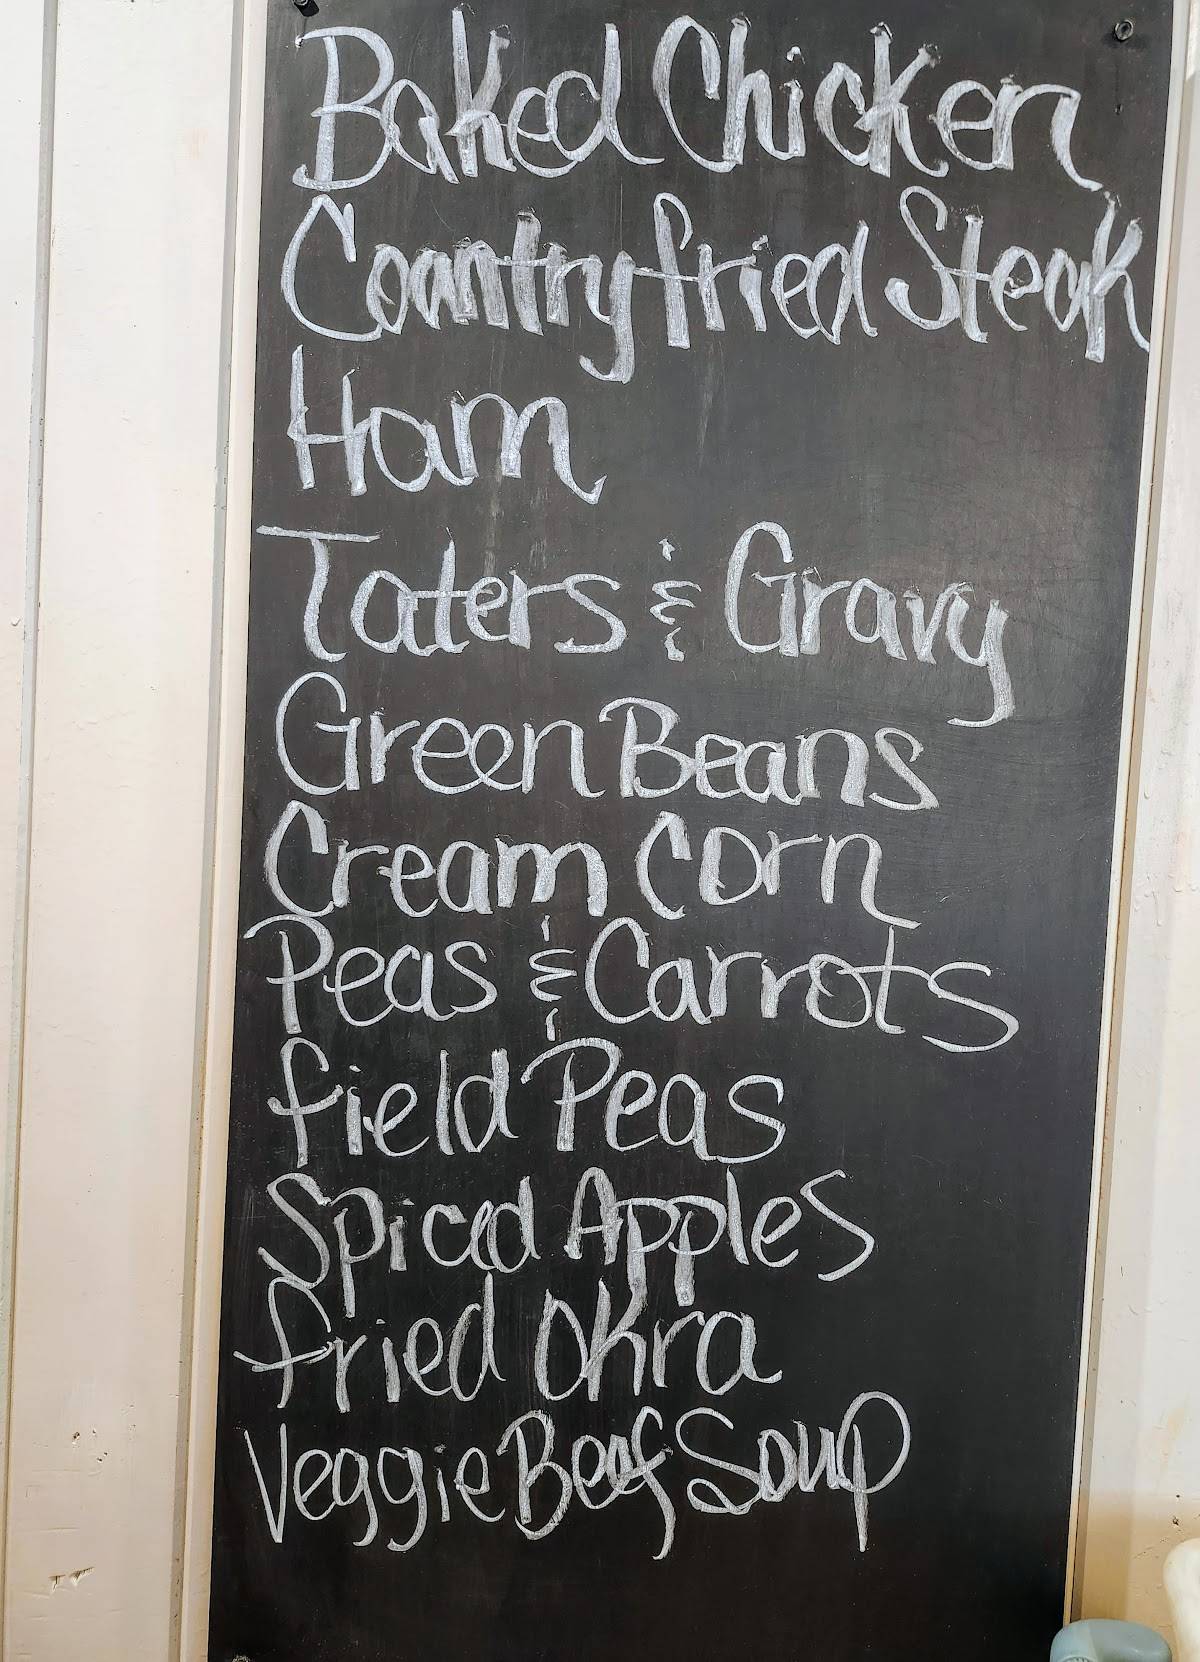 Baked Chicken
Country fried Steak
Ham
Taters & Gravy
Green Beans
Cream Corn
Peas & Carrots
field Peas
Spiced Apples
fried okra
Veggie Beef Soup